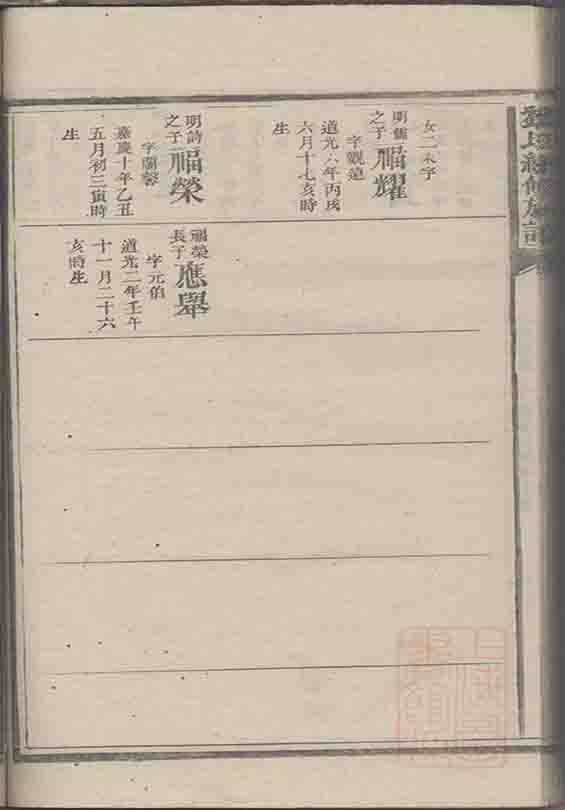 女二未字
明舊之子
福耀
字觀遠
道光六年丙戌
六月十七亥時
生
明詩之子
福榮
字蘭馨
嘉慶十年乙丑
五月初三寅時
生
福榮長子
應舉
字元伯
道光二年壬午
十一月二十六
亥時生